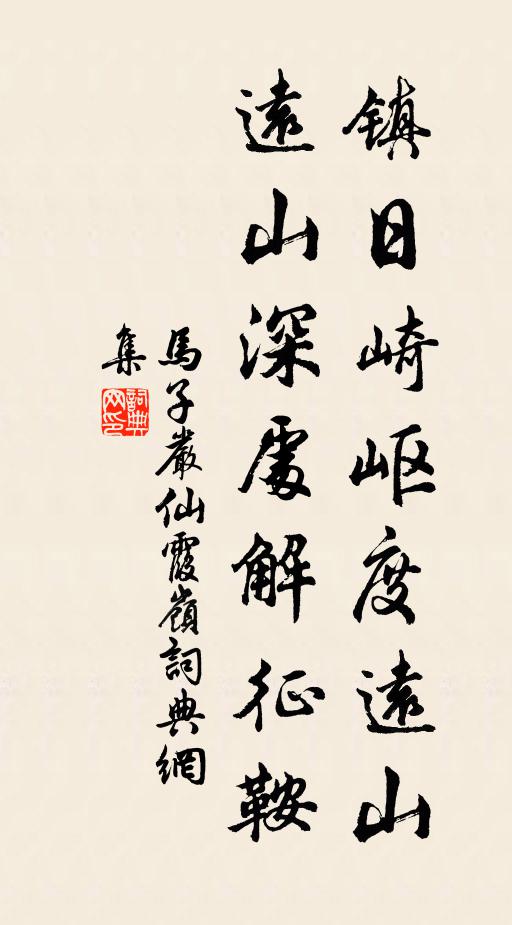 镇日崎岖度遠山
遠山深處解征鞍
馬子嚴仙霞嶺詞典網
集
詞典网印